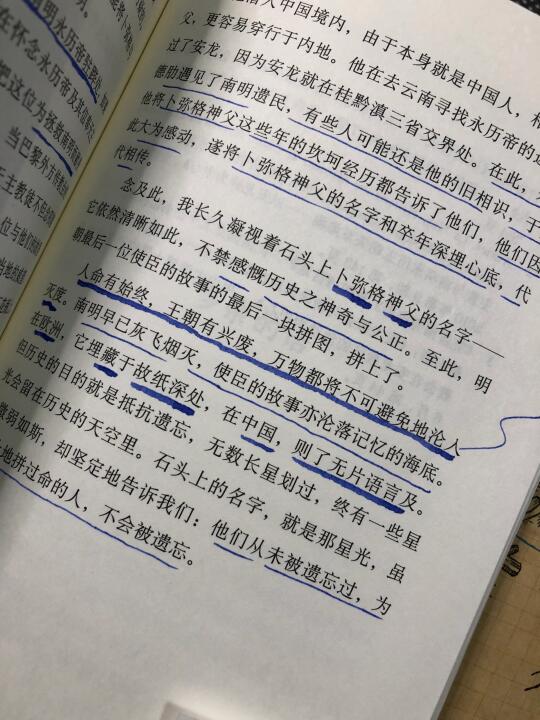 明永历帝
在怀念永历帝及其
把这位为拯救南明
当巴黎外方传
主教徒不但
位与他们
入中国境内，由于本身就是中国人，
父，更容易穿行于内地。他在去云南寻找永历帝的
过了安龙，因为安龙就在桂黔滇三省交界处。在此，
德助遇见了南明遗民，有些人可能还是他的旧相识，于
他将卜弥格神父这些年的坎坷经历都告诉了他们，他们因
此大为感动，遂将卜弥格神父的名字和卒年深埋心底，代
代相传。
念及此，我长久凝视着石头上卜弥格神父的名字——
它依然清晰如此，不禁感慨历史之神奇与公正。至此，明
朝最后一位使臣的故事的最后一块拼图，拼上了。
人命有始终，王朝有兴废，万物都将不可避免地沦入
灭度。南明早已灰飞烟灭，使臣的故事亦沦落记忆的海底。
在欧洲，它埋藏于故纸深处，在中国，则了无片语言及。
但历史的目的就是抵抗遗忘，无数长星划过，终有一些星
光会留在历史的天空里。石头上的名字，就是那星光，虽
微弱如斯，却坚定地告诉我们：他们从未被遗忘过，为
地拼过命的人，不会被遗忘。